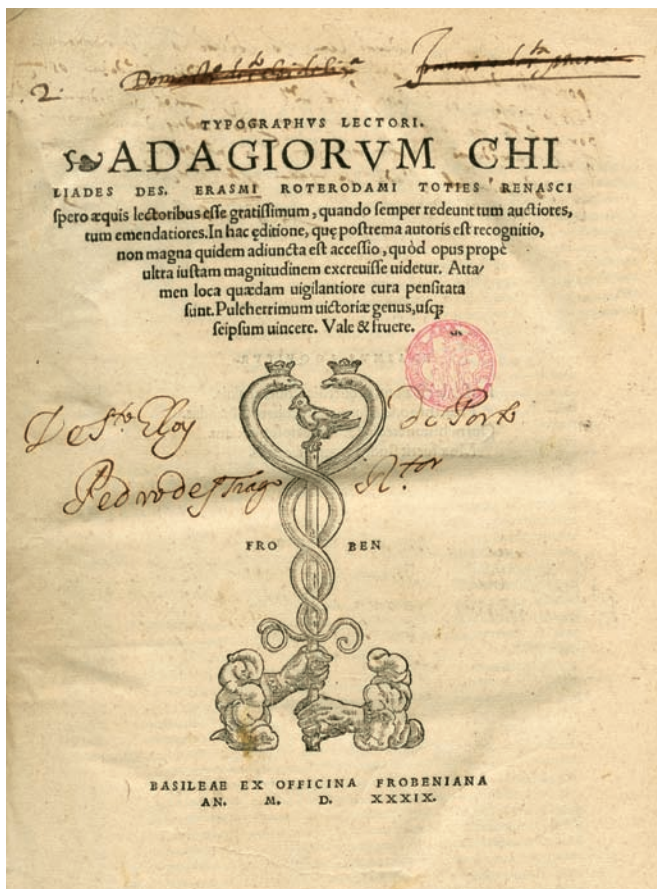 2.
TYPOGRAPHVS LECTORI.
ADAGIORVM CHI
LIADES DES. ERASMI ROTERODAMI TOTIES RENASCI
spero æquis lectoribus esse gratissimum, quando semper redeunt tum auctiores,
tum emendatiores. In hac ęditione, quę postrema autoris est recognitio,
non magna quidem adiuncta est accessio, quòd opus propè
ultra iustam magnitudinem excreuisse uidetur. Atta/
men loca quædam uigilantiore cura pensitata
sunt. Pulcherrimum uictoriæ genus, usq;
seipsum uincere. Vale & fruere.
De Sto Eloy de Porto
Pedro de Rtor
FRO BEN
BASILEAE EX OFFICINA FROBENIANA
AN. M. D. XXXIX.